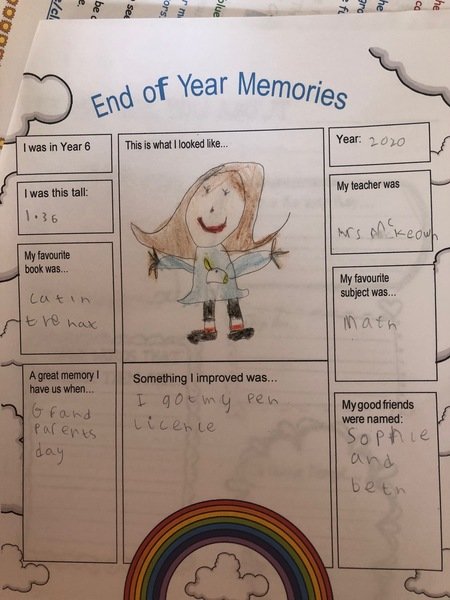 End of Year Memories
I was in Year 6
This is what I looked like...
Year: 2020
I was this tall:
1.36
My teacher was
Mrs McKeown
My favourite
book was...
cat in
tre hax
My favourite
subject was...
math
A great memory I
have us when...
Grand
parents
day
Something I improved was...
I got my pen
licence
My good friends
were named:
Sophie
and
beth